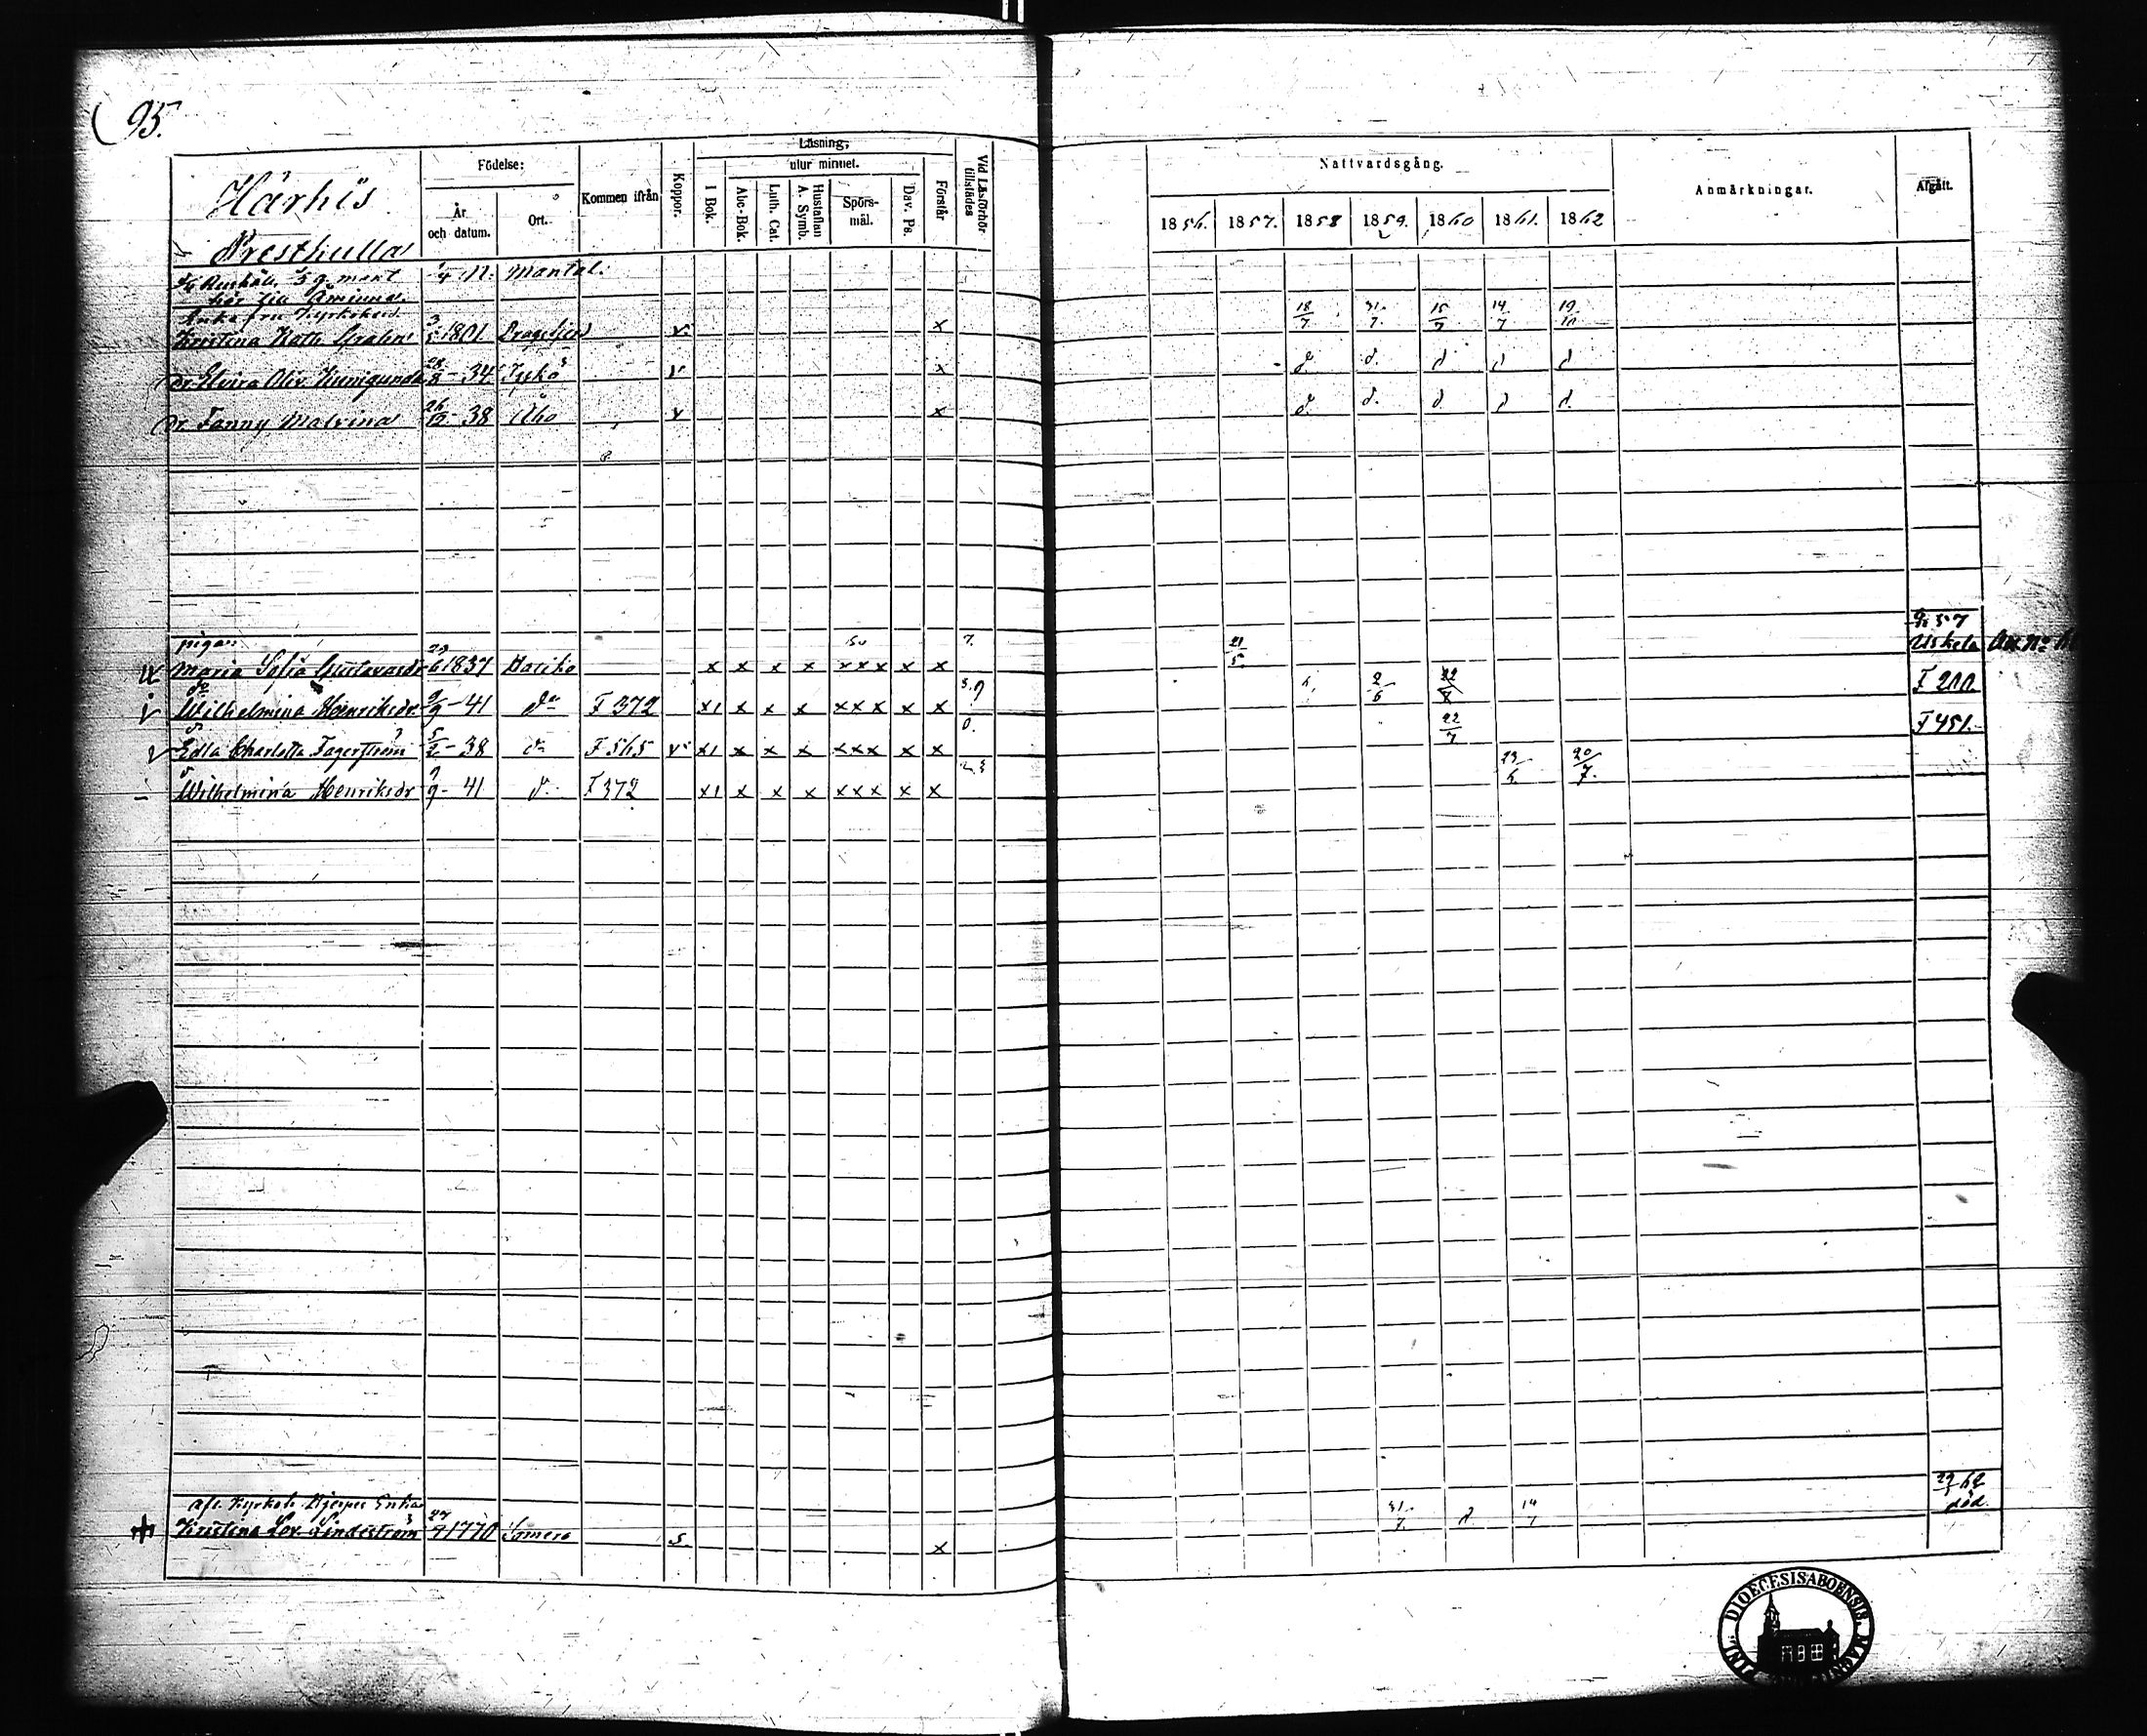 95.
Härhis
Presthulla
Födelse:
År och datum.
Ort.
Kommen ifrån
Koppor.
Läsning,
utur minnet.
I Bok.
Abc-Bok.
Luth. Cat.
Hustaflan A. Symb.
Spörsmål.
Dav. Ps.
Förstår
Vid Läsförhör tillstädes
Nattvardsgång.
1856. 1857. 1858 1859. 1860 1861. 1862
Anmärkningar.
Afgått.
1/4 N. Mantal.
hör till Åminne.
Enkefru
Kristina Kath. 1801. v x 18/7 31/7. 15/7 14/7 19/10
dr Elvira Oliv. Kunigunda 28/8 - 34 v x d. d. d d d
dr. Fanny Malvina 26/12 - 38 Åbo v x d. d. d. d d.
pigan
Maria Sofia Gustavasdr 29/6 1837 Haliko x x x x xxx x x 7. 21/5 57 Uskela
do Wilhelmina Henriksdr. 9/9 - 41 do F 372 x1 x x x xxx x x 2/6 22/8 F 200
d. Edla Charlotta Fagerström 5/2 - 38 do F 565 v x1 x x x xxx x x 0. 22/7 F 451.
d Wilhelmina Henriksdr 9/9 - 41 d. F 372 x1 x x x xxx x x 23/6 20/7.
afl. Kyrkoh. Enka
Kristina Lov. Lindeström 27/9 1770 Somero s. x 31/7. d. 14/7 62 död.
DIOECESIS ABOENSIS